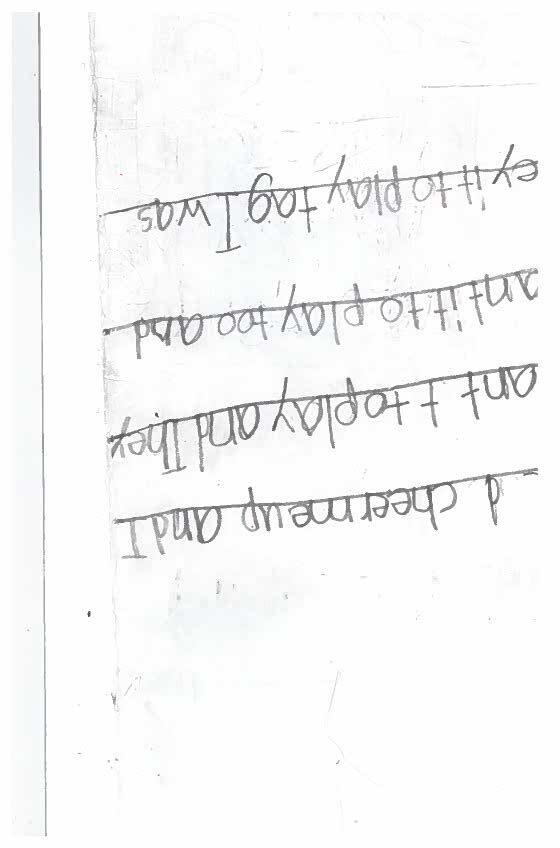 d cheer me up and I
ant t to play and They
ant it to play too and
ey it to play tag I was